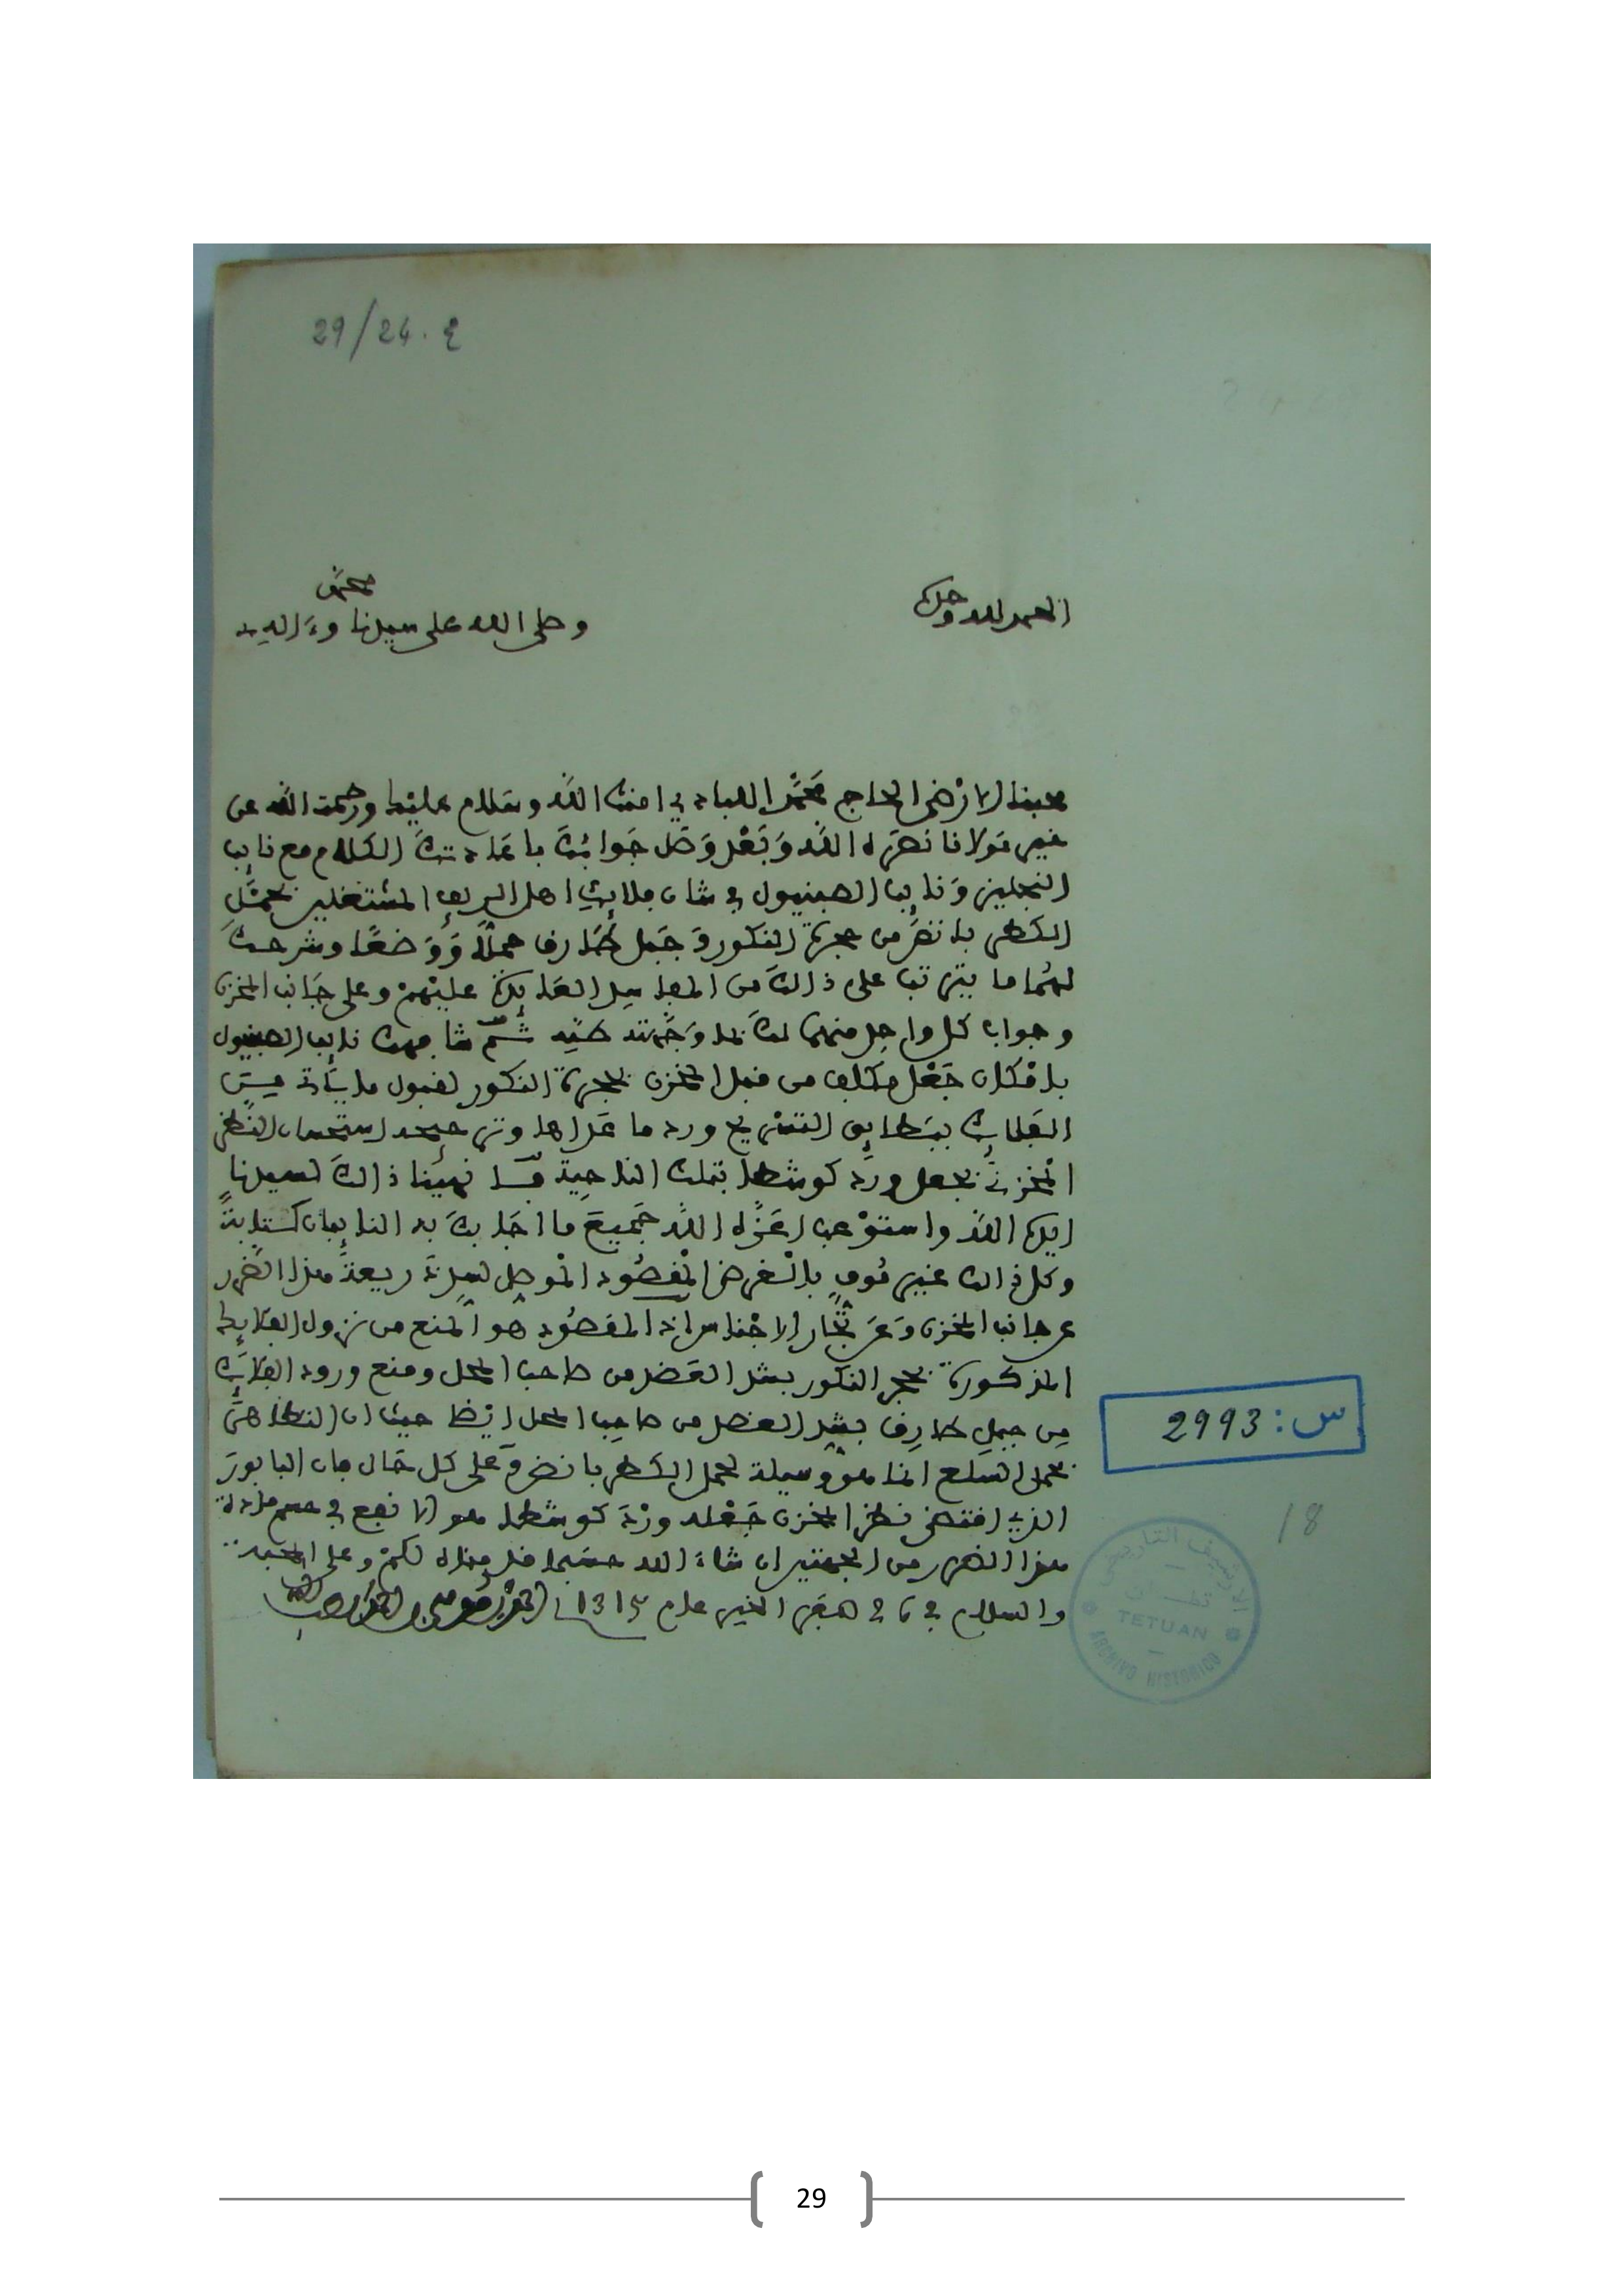 29/24. ع
الحمد لله وحده
وصلى الله على سيدنا محمد وءاله
محبنا الارضى الحاج محمد اللبادي امنك الله وسلام عليك ورحمت الله عن
خير مولانا نصره الله وبعد وصل جوابك باعادتك الكلام مع نايب
النجليز ونايب الصبنيول في شان فلايك اهل الريف المشتغلين بحمل
الكطربانض من حجرة النكور وجبل طارق حملا ووضعا وشرحت
لهما ما يترتب على ذالك من المفاسد العايدة عليهم وعلى جانب المخزن
وجواب كل واحد منهما لك بما وجهته طيه ثم شافهك نايب الصبنيول
بامكان جعل مكلف من قبل المخزن بحجرة النكور لقبول ما ياتي من
الفلايك ببطايق التسريح ورد ما عداها وترجيحه استحسان النظر
المخزني بجعل ورد كوسطا بتلك الناحية فقد نهينا ذالك لسيدنا
ايده الله واستوعب اعزه الله جميع ما اجابك به النايبان كتابة
وكل ذالك غير موف بالغرض المقصود الموصل لسد ذريعة هذا الضرر
عن جانب المخزن وعن تجار الاجناس اذ المقصود هو المنع من نزول الفلايك
المذكورة بحجر النكور بشد العضد من صاحب المحل ومنع ورود الفلايك
من جبل طارق بشد العضد من صاحب المحل ايضا حيث ان التظاهر
بحمل السلع انما هو وسيلة لحمل الكطربانض وعلى كل حال فان البابور
الذي اقتضى نظر المخزن جعله ورد كوسطا هو الانفع في حسم مادة
هذا الضرر من الجهتين ان شاء الله حسبما قدمناه لكم وعلى المحبة
والسلام في صفر الخير عام 1315
س: 2993
18
الارشيف التاريخي
تطوان
TETUAN
ARCHIVO HISTORICO
29